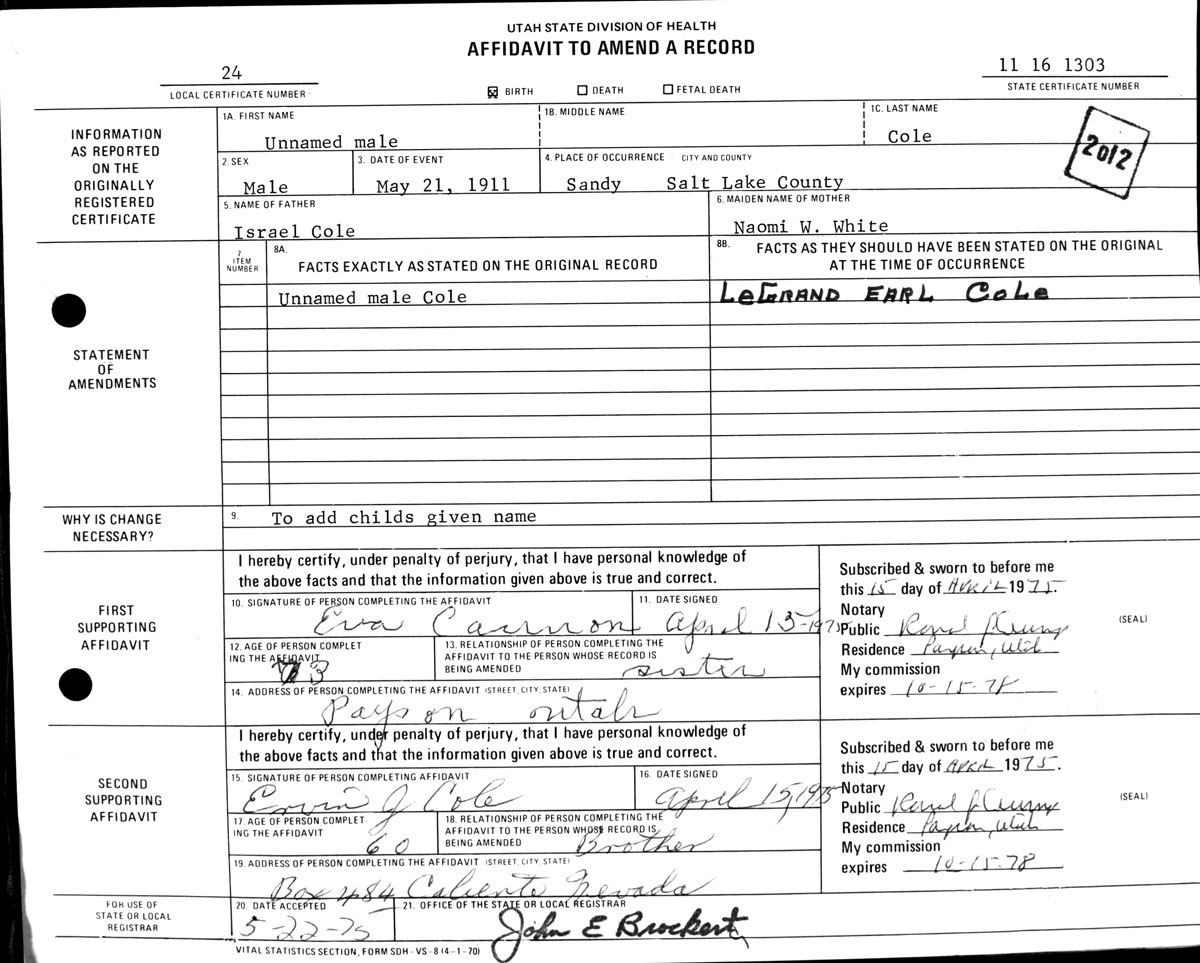 UTAH STATE DIVISION OF HEALTH
AFFIDAVIT TO AMEND A RECORD
24
LOCAL CERTIFICATE NUMBER
☒ BIRTH ☐ DEATH ☐ FETAL DEATH
11 16 1303
STATE CERTIFICATE NUMBER
INFORMATION AS REPORTED ON THE ORIGINALLY REGISTERED CERTIFICATE
1A. FIRST NAME
Unnamed male
1B. MIDDLE NAME
1C. LAST NAME
Cole
2012
2. SEX
Male
3. DATE OF EVENT
May 21, 1911
4. PLACE OF OCCURRENCE - CITY AND COUNTY
Sandy Salt Lake County
5. NAME OF FATHER
Israel Cole
6. MAIDEN NAME OF MOTHER
Naomi W. White
STATEMENT OF AMENDMENTS
7 ITEM NUMBER
8A. FACTS EXACTLY AS STATED ON THE ORIGINAL RECORD
8B. FACTS AS THEY SHOULD HAVE BEEN STATED ON THE ORIGINAL
AT THE TIME OF OCCURRENCE
Unnamed male Cole
LeGRAND EARL COLe
WHY IS CHANGE NECESSARY?
9. To add childs given name
FIRST SUPPORTING AFFIDAVIT
I hereby certify, under penalty of perjury, that I have personal knowledge of
the above facts and that the information given above is true and correct.
10. SIGNATURE OF PERSON COMPLETING THE AFFIDAVIT
Eva
11. DATE SIGNED
April 15-1975
12. AGE OF PERSON COMPLETING THE AFFIDAVIT
13. RELATIONSHIP OF PERSON COMPLETING THE
AFFIDAVIT TO THE PERSON WHOSE RECORD IS
BEING AMENDED
sister
14. ADDRESS OF PERSON COMPLETING THE AFFIDAVIT (STREET, CITY, STATE)
Payson
Subscribed & sworn to before me
this 15 day of APRIL 1975.
Notary
Public
Residence Payson, Utah
My commission
expires 10-15-78
(SEAL)
SECOND SUPPORTING AFFIDAVIT
I hereby certify, under penalty of perjury, that I have personal knowledge of
the above facts and that the information given above is true and correct.
15. SIGNATURE OF PERSON COMPLETING AFFIDAVIT
Ervin J Cole
16. DATE SIGNED
April 15, 1975
17. AGE OF PERSON COMPLETING THE AFFIDAVIT
60
18. RELATIONSHIP OF PERSON COMPLETING THE
AFFIDAVIT TO THE PERSON WHOSE RECORD IS
BEING AMENDED
Brother
19. ADDRESS OF PERSON COMPLETING THE AFFIDAVIT (STREET, CITY, STATE)
Box 484 Caliente Nevada
Subscribed & sworn to before me
this 15 day of APRIL 1975.
Notary
Public
Residence Payson, Utah
My commission
expires 10-15-78
(SEAL)
FOR USE OF STATE OR LOCAL REGISTRAR
20. DATE ACCEPTED
5-22-75
21. OFFICE OF THE STATE OR LOCAL REGISTRAR
John E Brockert
VITAL STATISTICS SECTION, FORM SDH-VS-8 (4-1-70)